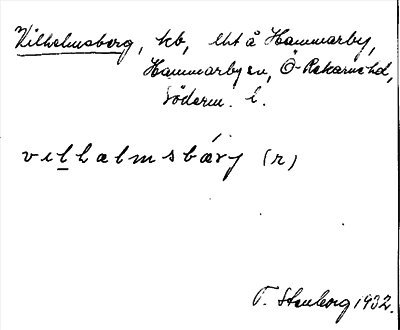 Vilhelmsberg, kb, lht å Hammarby,
Hammarby sn, Ö-Rekarne hd,
Söderm. l.
vilhælmsbæ̀rj (r)
T. Stenberg 1932.